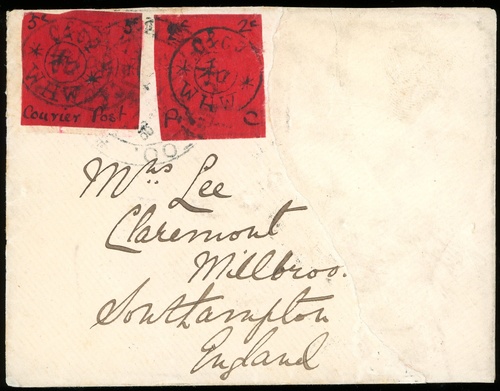 5c 5c
2c
Courier Post
P C
Mrs Lee
Claremont
Millbroo.
Southampton
England